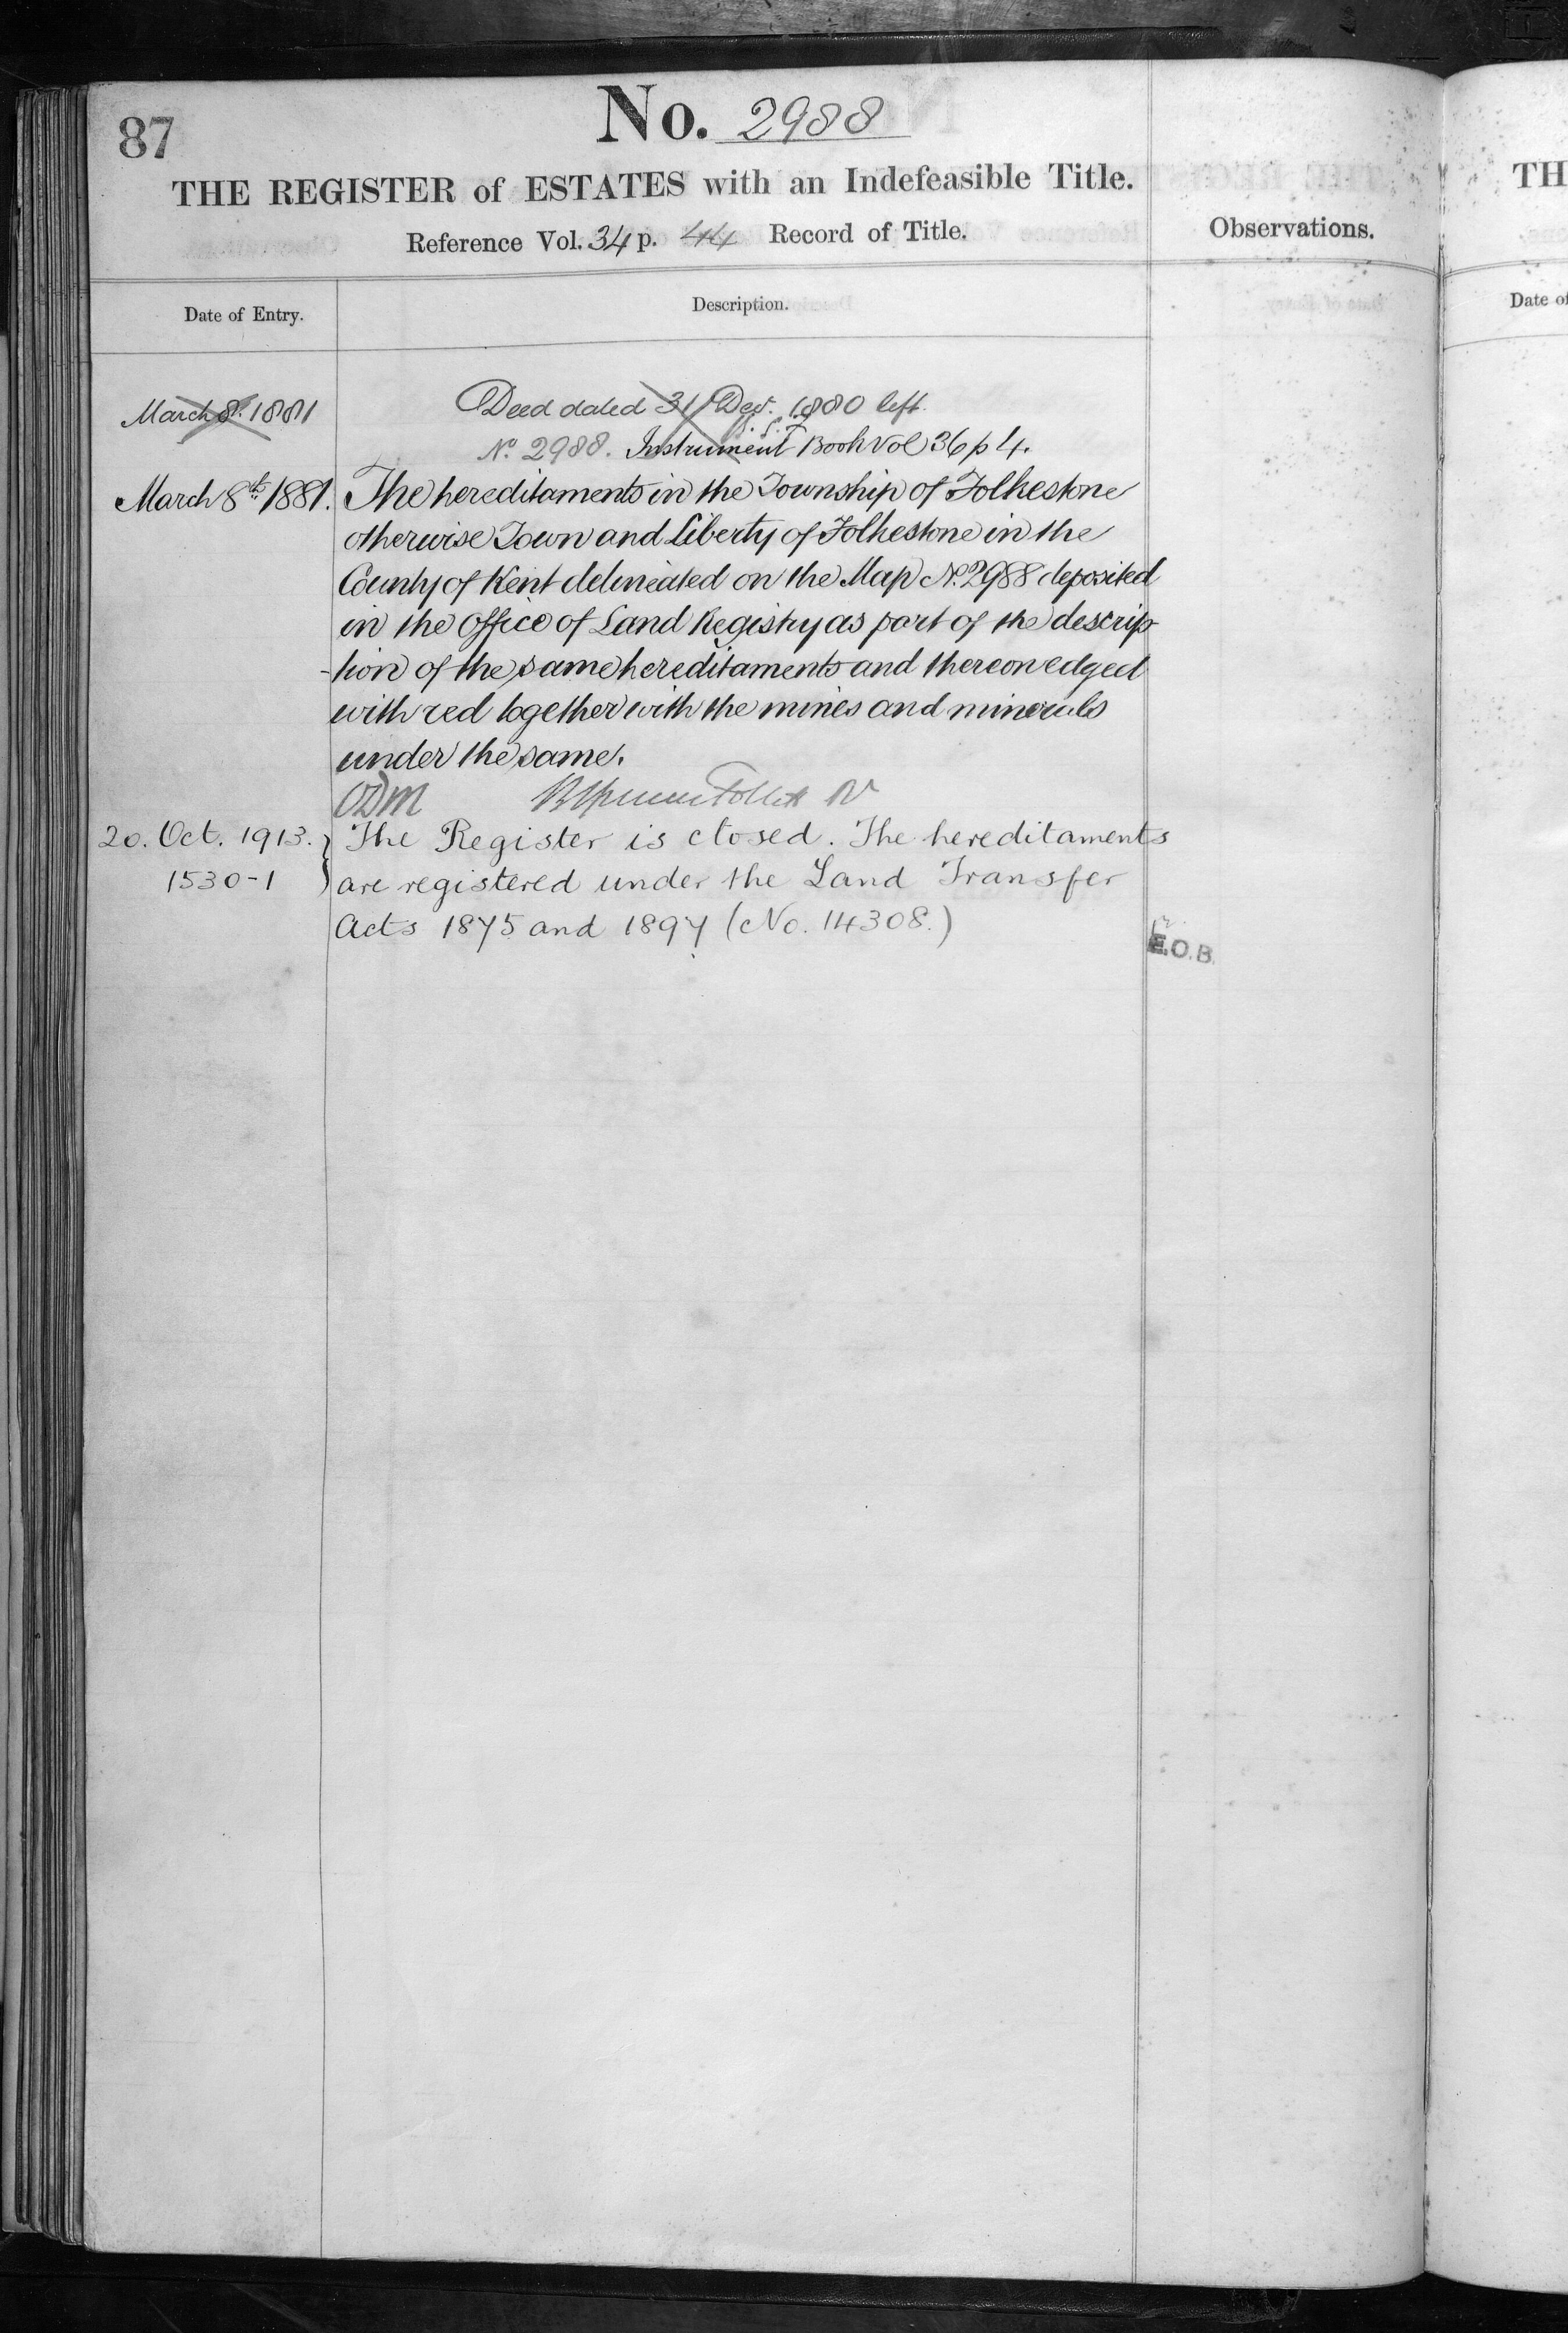 87
No. 2988
THE REGISTER of ESTATES with an Indefeasible Title.
Reference Vol. 34 p. 44 Record of Title.
Observations.
Date of Entry.
Description.
March 8. 1881
Deed dated 31 Dec. 1880 left.
No. 2988. Instrument Book Vol 36 p 4.
March 8th 1881.
The hereditaments in the Township of Folkestone
otherwise Town and Liberty of Folkestone in the
County of Kent delineated on the Map No. 2988 deposited
in the Office of Land Registry as part of the descrip
-tion of the same hereditaments and thereon edged
with red together with the mines and minerals
under the same.
20. Oct. 1913.
1530-1
The Register is closed. The hereditaments
are registered under the Land Transfer
Acts 1875 and 1897 (No. 14308.)
E.O.B.
TH
Date of